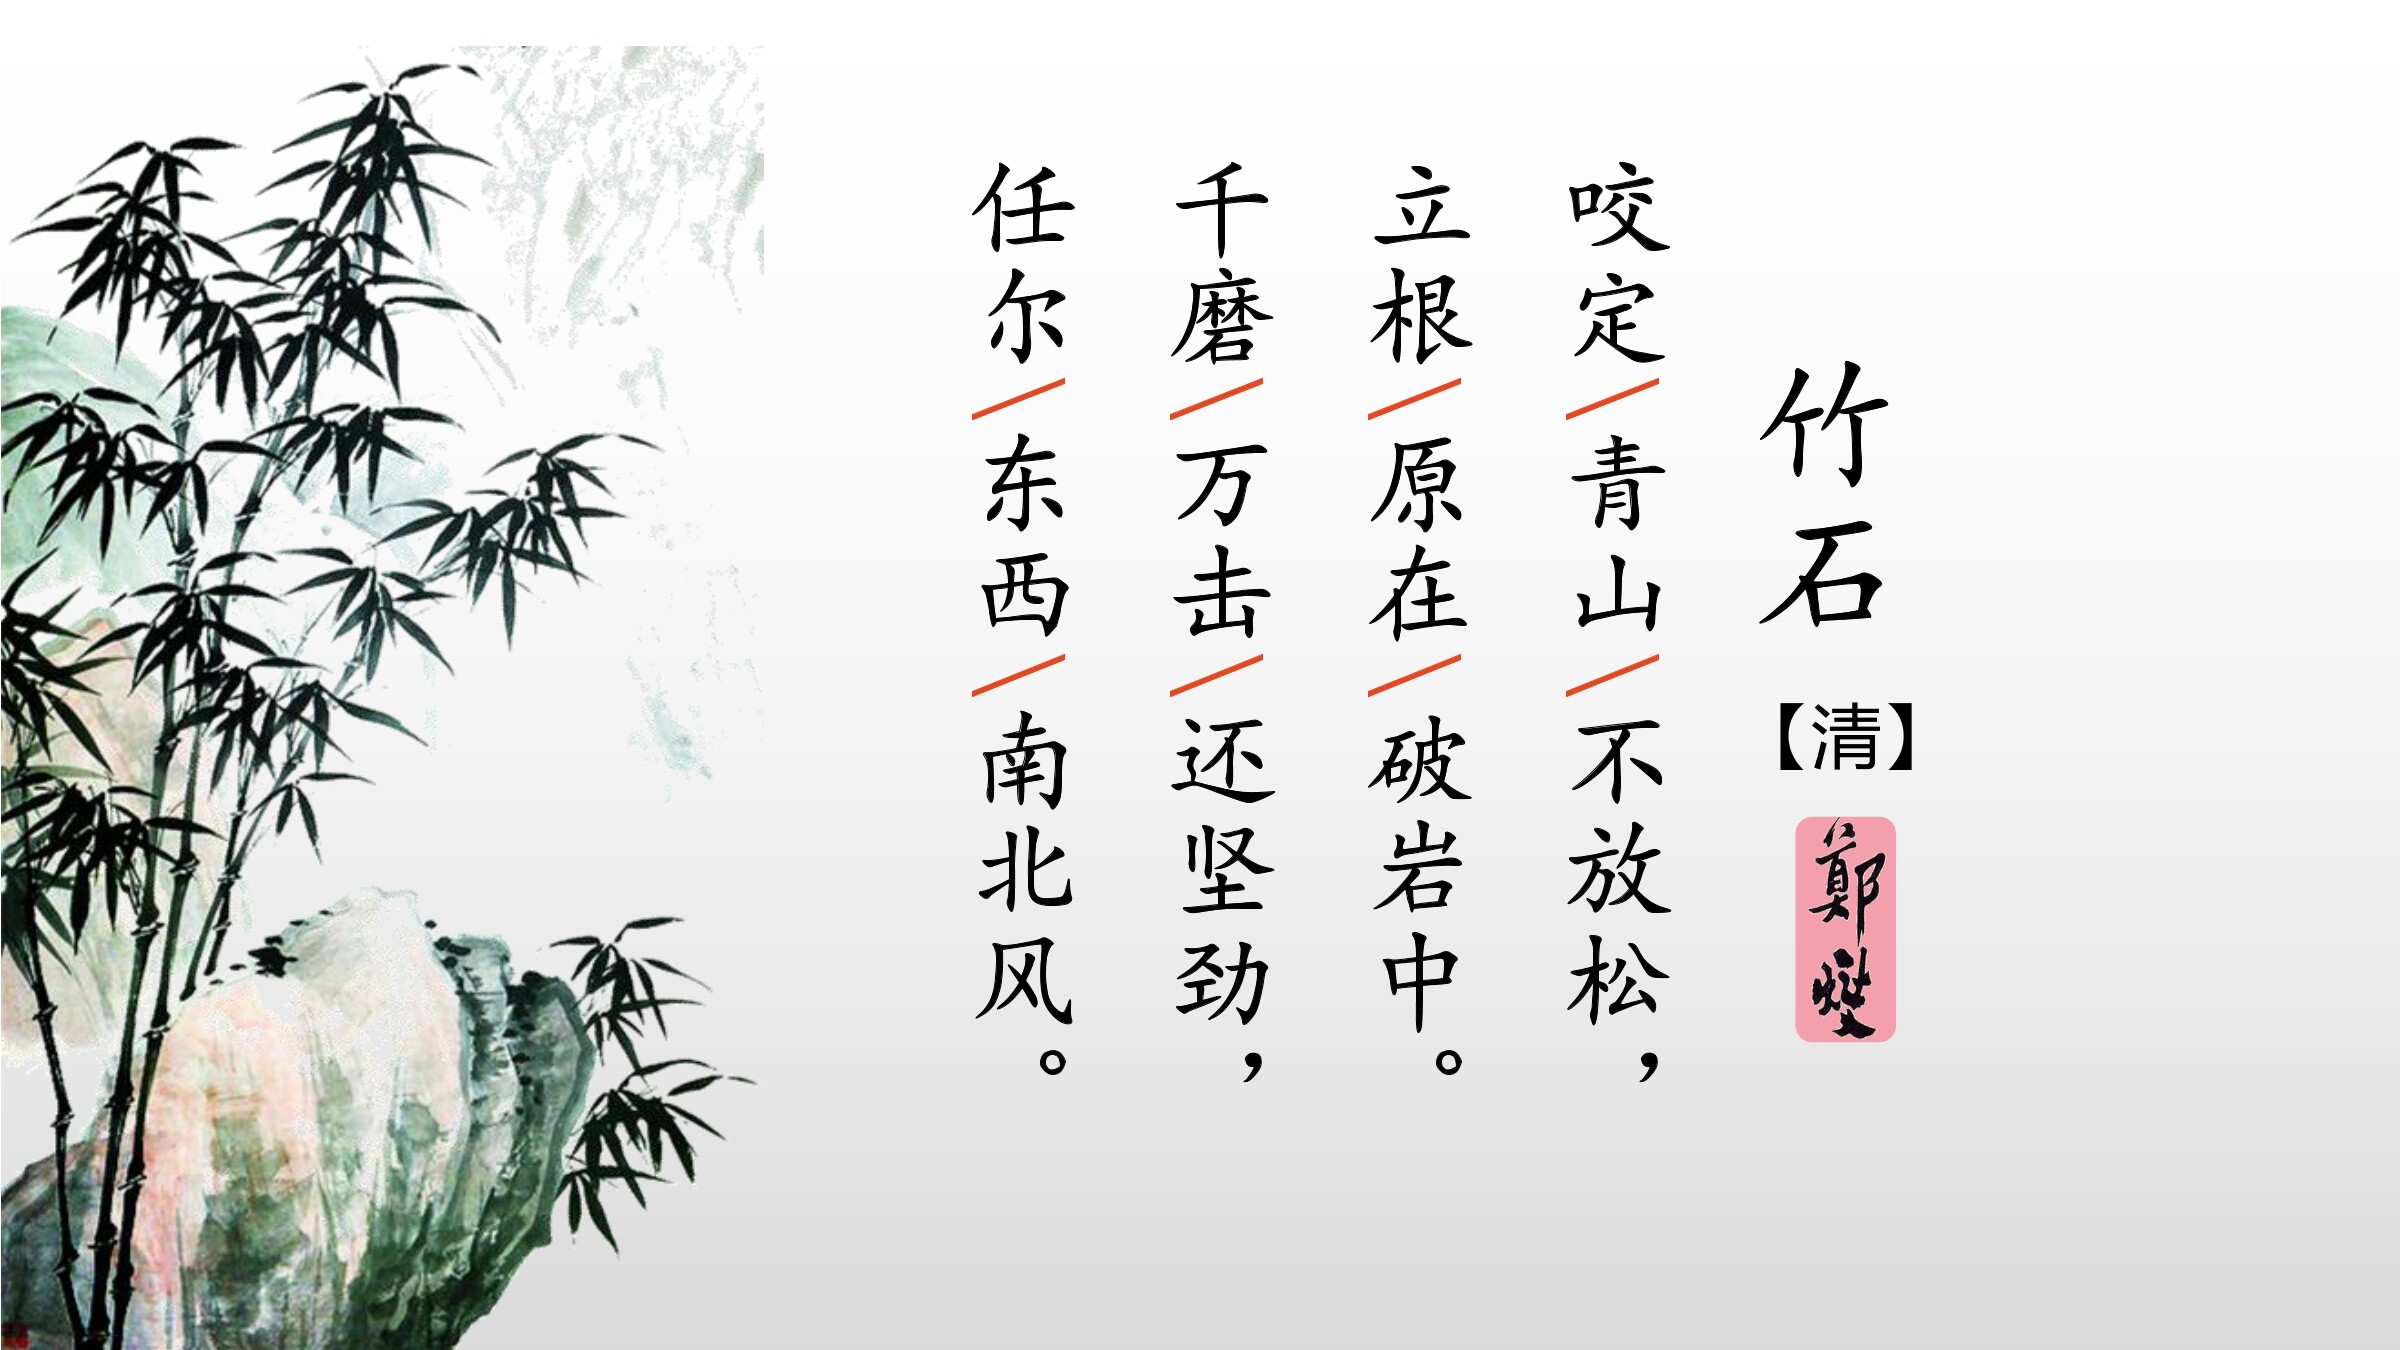 竹石
【清】
鄭燮
咬定/青山/不放松，
立根/原在/破岩中。
千磨/万击/还坚劲，
任尔/东西/南北风。